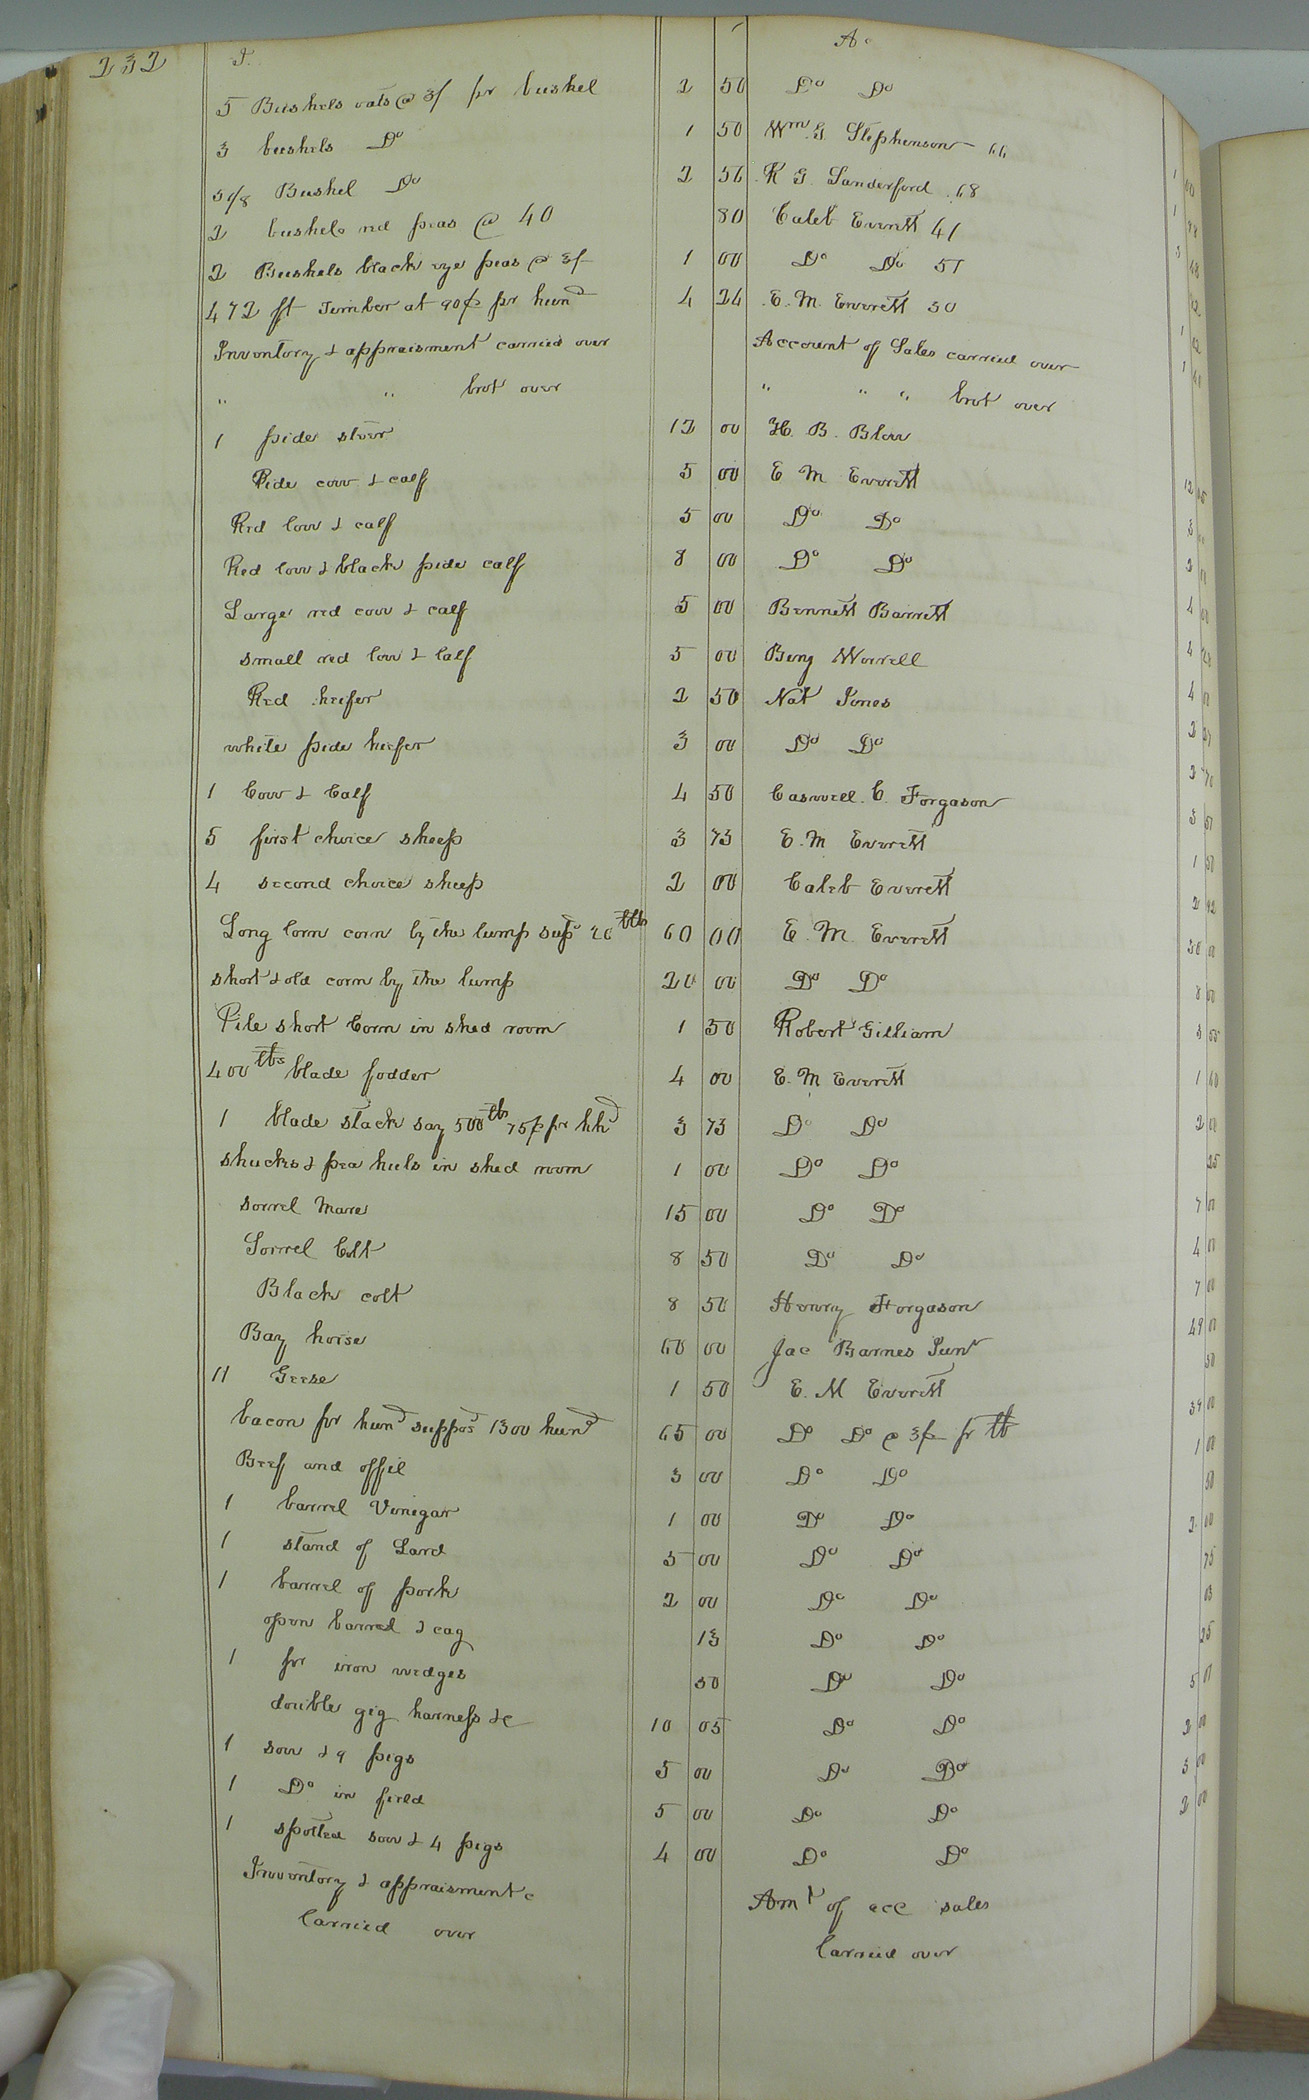 232 I. A c
5 Bushels oats @ 3/ pr bushel 2 50 Do Do
3 bushels Do 1 50 Wm G Stephenson 66
5 1/8 Bushel Do 2 56 R G. Sanderford 68 1 00
2 bushels red peas @ 40 80 Caleb Everett 41 1
2 Bushels black eye peas @ 3/ 1 00 Do Do 51
472 ft Timber at 90¢ pr hund 4 24 E. M. Everett 50
Inventory & appraisment carried over Account of Sales carried over
" " brot over " " " brot over
1 pide steer 12 00 H. B. Blow
Pide cow & calf 5 00 E M Everett 12
Red Cow & calf 5 00 Do Do
Red Cow & black pide calf 8 00 Do Do 2
Large red cow & calf 5 00 Bennett Barrett 4
small red Cow & Calf 5 00 Benj Worrell 4
Red heifer 2 50 Nat Jones 4
white pide heifer 3 00 Do Do 2
1 Cow & Calf 4 50 Caswell C. Forgason 2
5 first choice sheep 3 75 E. M Everett 3
4 second choice sheep 2 00 Caleb Everett 1 50
Long Corn corn by the lump 60 00 E. M. Everett 2 92
short & old corn by the lump 20 00 Do Do 00
Pile short Corn in shed room 1 50 Robert Gilliam 8 00
400 lbs blade fodder 4 00 E. M Everett 1 60
1 blade stack say 500 lb 75¢ pr hhd 3 75 Do Do 2 00
shucks & pea huls in shed room 1 00 Do Do 25
sorrel Mare 15 00 Do Do 7 00
Sorrel Colt 8 50 Do Do 4 00
Black colt 8 50 Henry Forgason 7 00
Bay horse 60 00 Jac Barnes Junr 49 00
11 Geese 1 50 E. M Everett 50
bacon pr hund suppos 1300 hund 65 00 Do Do @ 5¢ pr lb 00
Beef and offil 3 00 Do Do 1 00
1 barrel Vinigar 1 00 Do Do 50
1 stand of Lard 5 00 Do Do 2 00
1 barrel of pork 2 00 Do Do 75
open barrel & cag 13 Do Do 03
1 pr iron wedges 50 Do Do 25
double gig harness &c 10 05 Do Do 5 01
1 sow & 9 pigs 5 00 Do Do 2 00
1 Do in field 5 00 Do Do 3 00
1 spotted sow & 4 pigs 4 00 Do Do 2 00
Inventory & appraisment c Amt of acc sales
Carried over Carried over